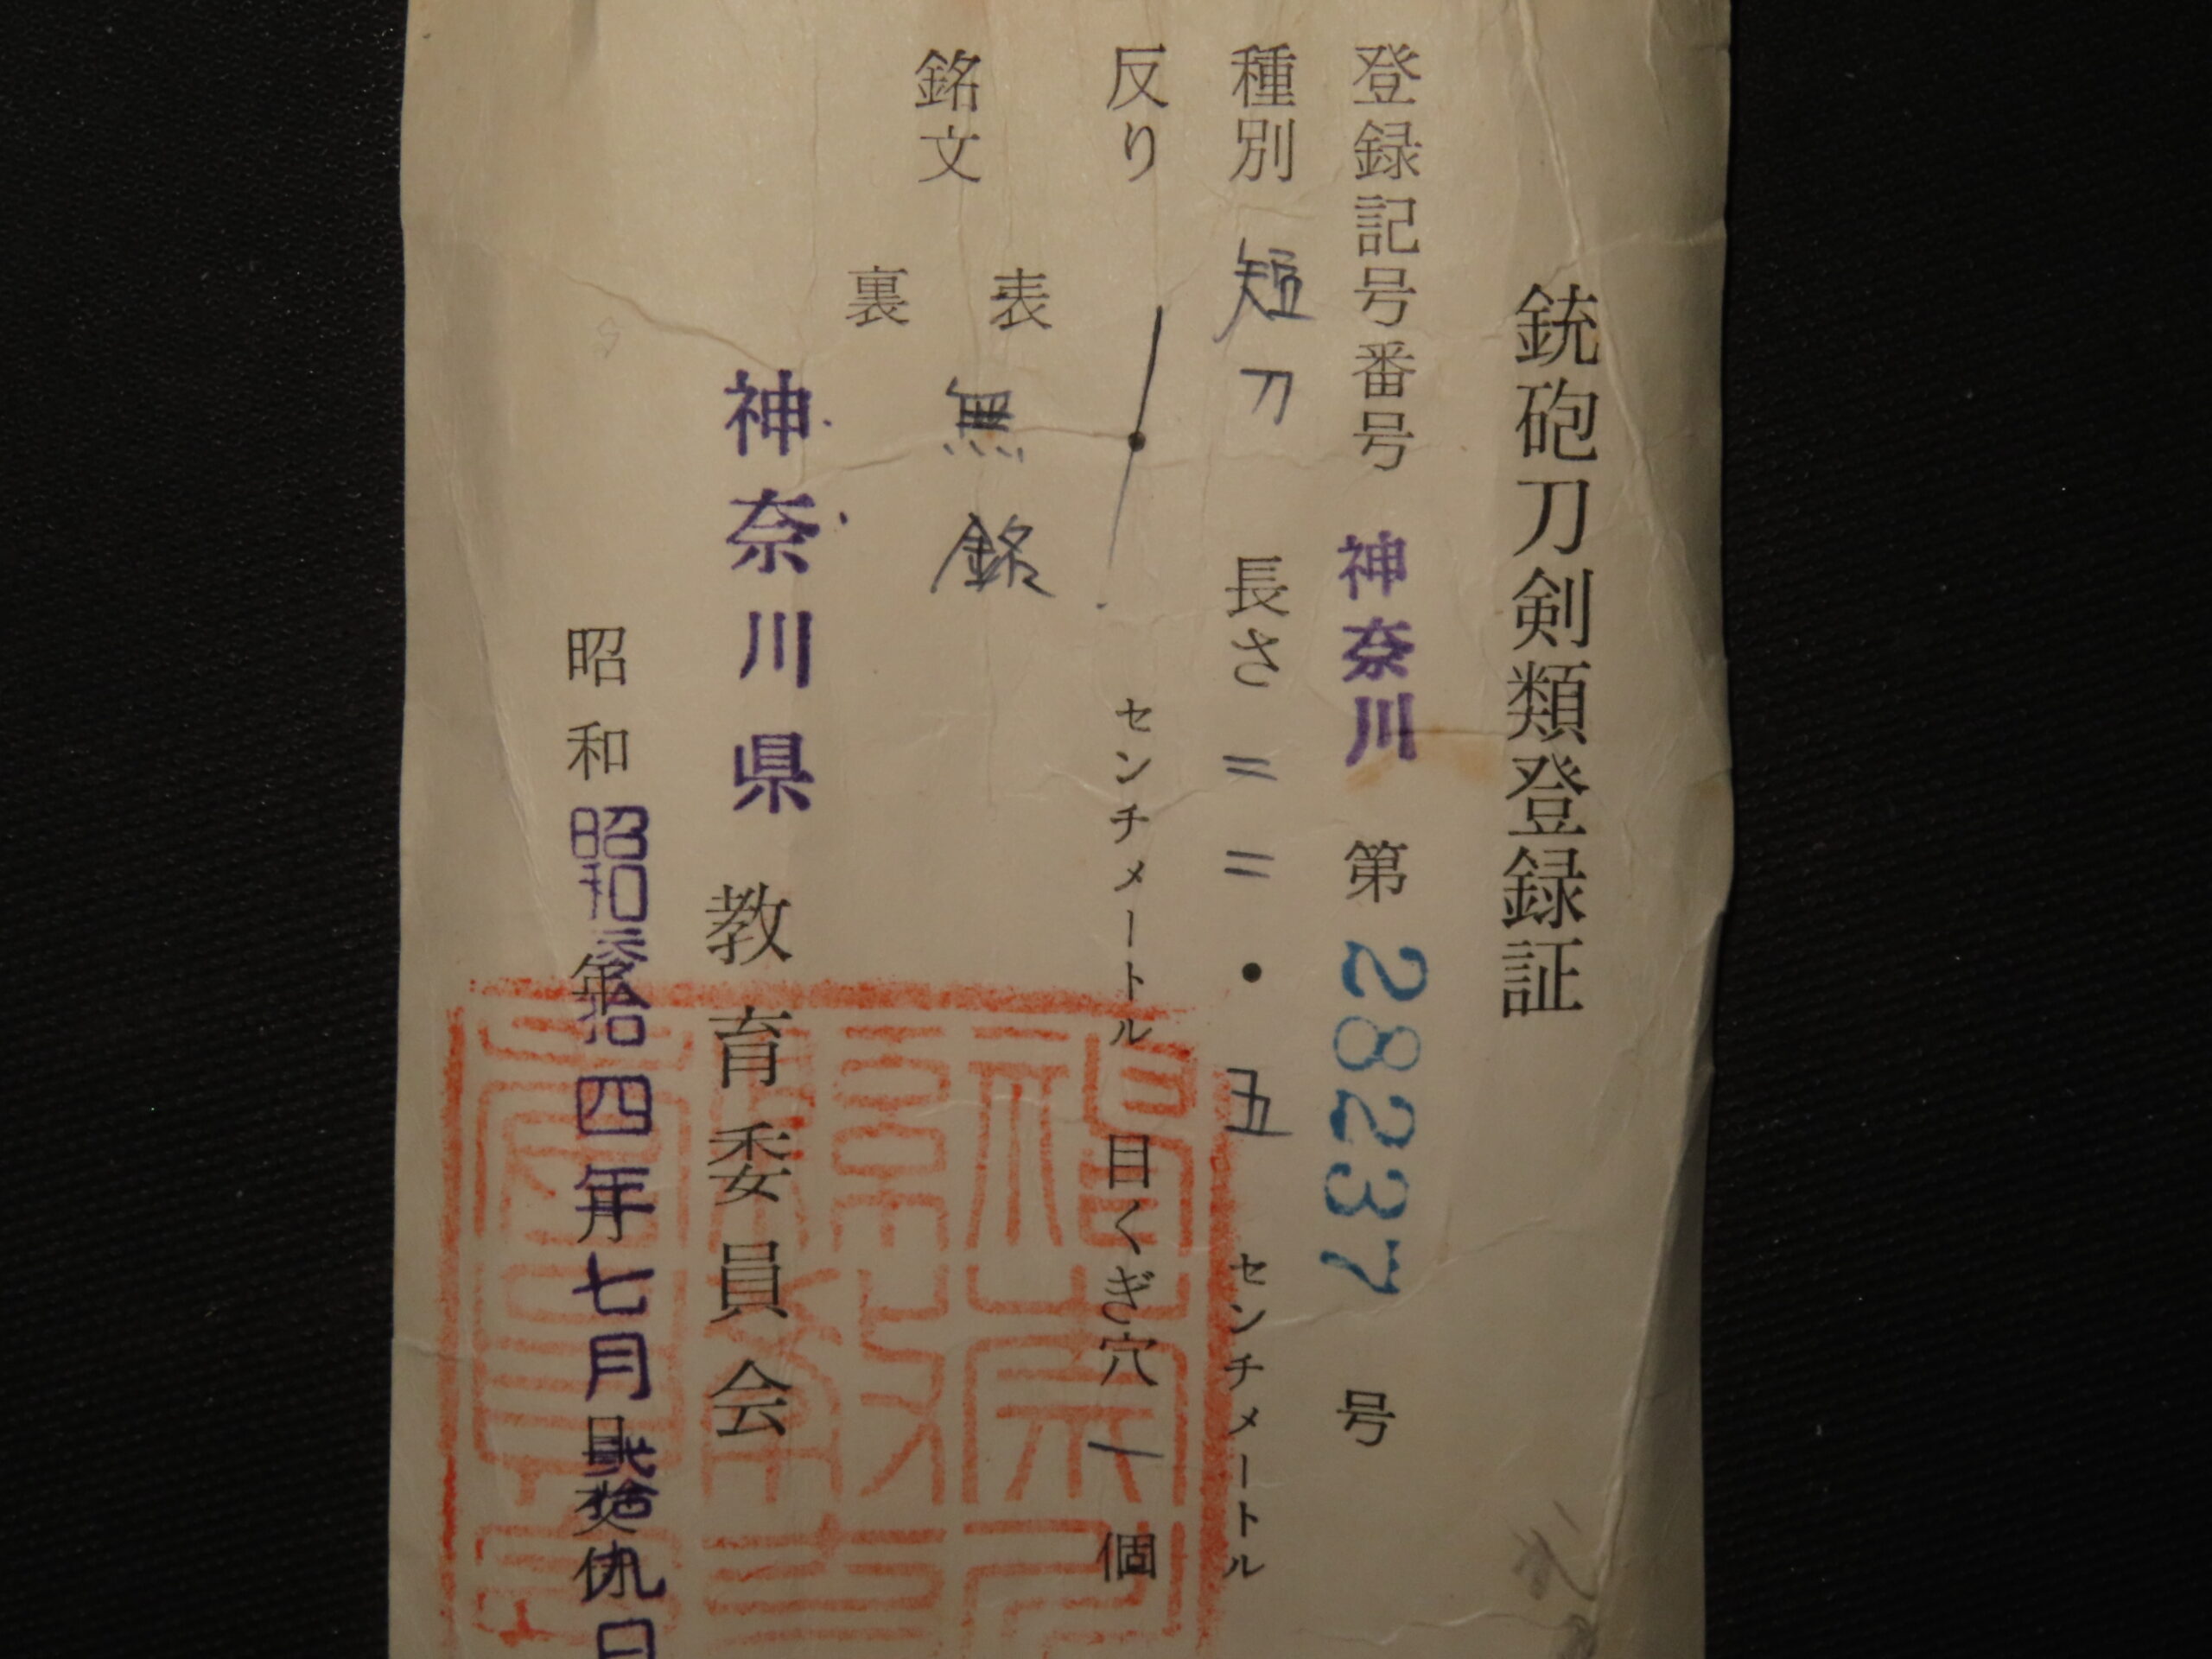 銃砲刀剣類登録証
登録記号番号 神奈川 第 28237 号
種別 短刀 長さ 二二・五 センチメートル
反り センチメートル 目くぎ穴 一 個
銘文
表 無銘
裏
神奈川県教育委員会
昭和 年 月 日 交付
昭和参拾四年七月弐拾九日